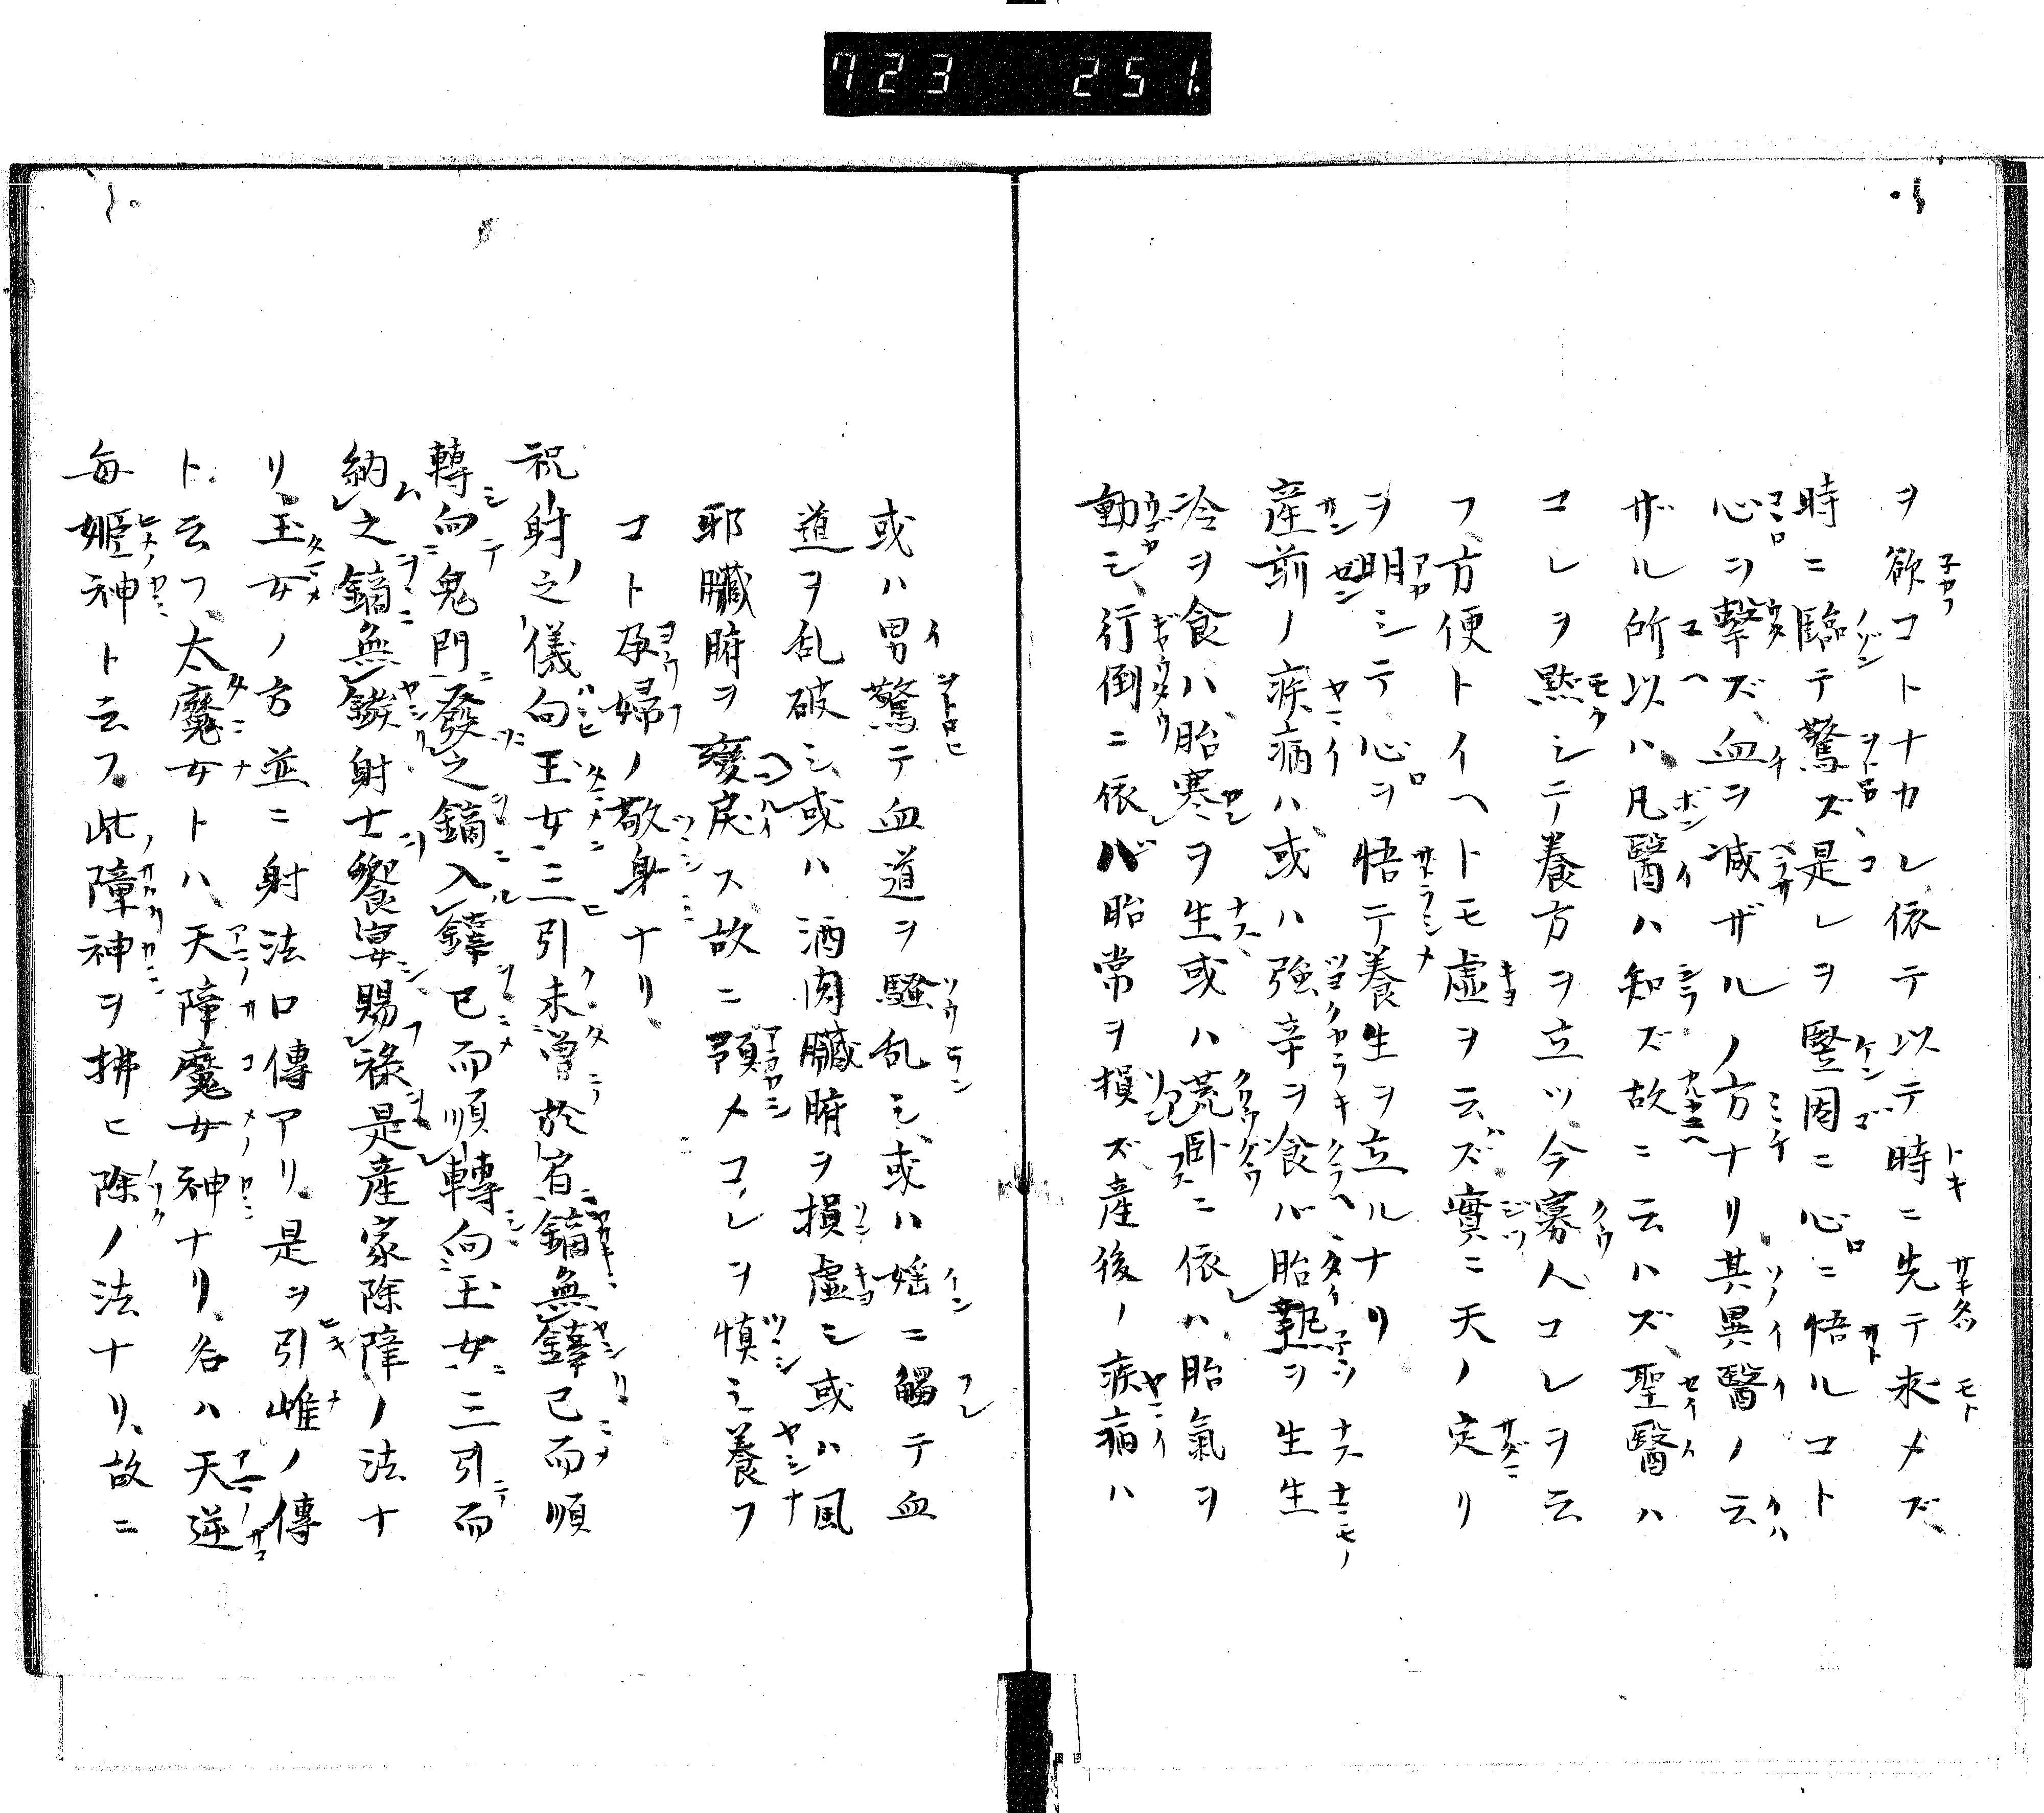 723 251.
ヲ欲コトナカレ依テ以テ時ニ先テ求メズ
時ニ臨テ驚ズ、是レヲ堅固ニ心ニ悟ルコト
心ヲ撃ズ、血ヲ減ザルノ方ナリ其異醫ノ云
ザル所以ハ、凡醫ハ知ズ故ニ云ハズ、聖醫ハ
コレヲ黙シテ養方ヲ立ツ、今寡人コレヲ云
フ、方便トイヘトモ虚ヲ云ズ、實ニ天ノ定リ
ヲ明シテ心ヲ悟テ養生ヲ立ルナリ
産前ノ疾病ハ、或ハ強辛ヲ食バ胎熱ヲ生生
冷ヲ食ハ、胎寒ヲ生或ハ荒卧ニ依ハ、胎氣ヲ
動シ、行倒ニ依バ胎常ヲ損ズ産後ノ疾病ハ
或ハ男驚テ血道ヲ騒乱シ、或ハ婬ニ觸テ血
道ヲ乱破シ、或ハ酒肉臓腑ヲ損虚シ或ハ風
邪臓腑ヲ變戻ス故ニ預メコレヲ慎ミ養フ
コト孕婦ノ敬身ナリ
祝射之儀向玉女三引未曽於宥鏑無鏃已而順
轉向鬼門發之鏑入鏃已而順轉向玉女三引而
納之鏑無鏃射士饗宴賜禄是産家除障ノ法ナ
リ玉女ノ方並ニ射法口傳アリ是ヲ引雌ノ傳
ト云フ、太魔女トハ、天障魔女神ナリ、名ハ天逆
毎姫神ト云フ、此障神ヲ拂ヒ除ノ法ナリ、故ニ